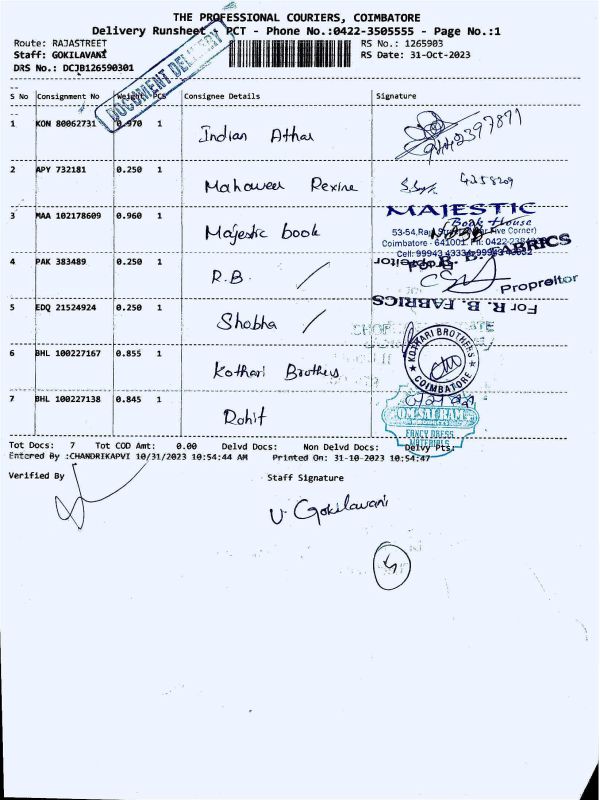 THE PROFESSIONAL COURIERS, COIMBATORE
Delivery Runsheet PCT - Phone No.:0422-3505555 - Page No.:1
Route: RAJASTREET
RS No.: 1265903
Staff: GOKILAVANI
RS Date: 31-Oct-2023
DRS No.: DCJB126590301
DOCUMENT DELIVERY
S No Consignment No Weight PCS Consignee Details Signature
1 KON 80062731 0.970 1 Indian Athar
2 APY 732181 0.250 1 Mahaveer Rexine
3 MAA 102178609 0.960 1 Majestic book
MAJESTIC
Book House
Coimbatore - 641001.
4 PAK 383489 0.250 1 R.B.
Propreitor
For R. B. FABRICS
5 EDQ 21524924 0.250 1 Shobha
6 BHL 100227167 0.855 1 Kothari Brothers
KOTHARI BROTHERS
COIMBATORE
7 BHL 100227138 0.845 1 Rohit
OM SAI RAM
FANCY DRESS
MATERIALS
Tot Docs: 7 Tot COD Amt: 0.00 Delvd Docs: Non Delvd Docs: Delvy Pts:
Entered By :CHANDRIKAPVI 10/31/2023 10:54:44 AM Printed On: 31-10-2023 10:54:47
Verified By Staff Signature
V. Gokilavani